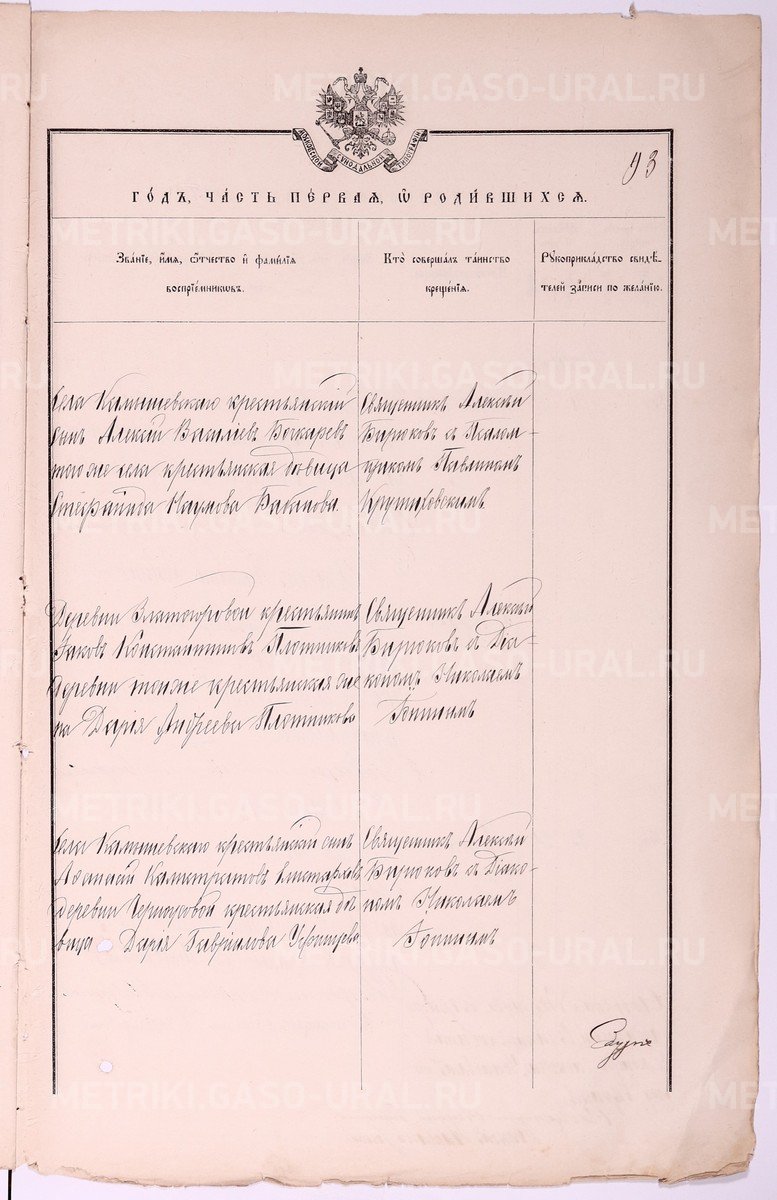 METRIKI.GASO-URAL.RU
МОСКОВСКОЙ СѴНОДАЛЬНОЙ ТИПОГРАФІИ
93
ГО́ДЪ, ЧА́СТЬ ПЕ́РВАѦ, Ѡ҆ РОДИ́ВШИХСѦ.
Зва́нїе, и҆́мѧ, ѻ҆́тчество и҆ фами́лїѧ
воспрїе́мникѡвъ.
Кто̀ соверша́лъ та́инство
креще́нїѧ.
Рꙋкоприкла́дство свидѣ́-
телей за́писи по жела́нїю.
Села Камышевскаго крестьянскій
сынъ Алексій Василіевъ Бочкаревъ
того же села крестьянская дѣвица
Наумова Бабанова.
Священникъ Алексѣй
Бирюковъ съ Псалом-
щикомъ Павлиномъ
Крутиховскимъ.
Деревни Златогоровой крестьянинъ
Іаковъ Константиновъ Плотниковъ
деревни тойже крестьянская же
на Дарія Андреева Плотникова
Священникъ Алексѣй
Бирюковъ съ Діа-
кономъ Николаемъ
Топинымъ
Села Камышевскаго крестьянскій сынъ
Аѳанасій Калистратовъ
деревни крестьянская дѣ
вица Дарія Гаврилова
Священникъ Алексѣй
Бирюковъ съ Діако-
номъ Николаемъ
Топинымъ